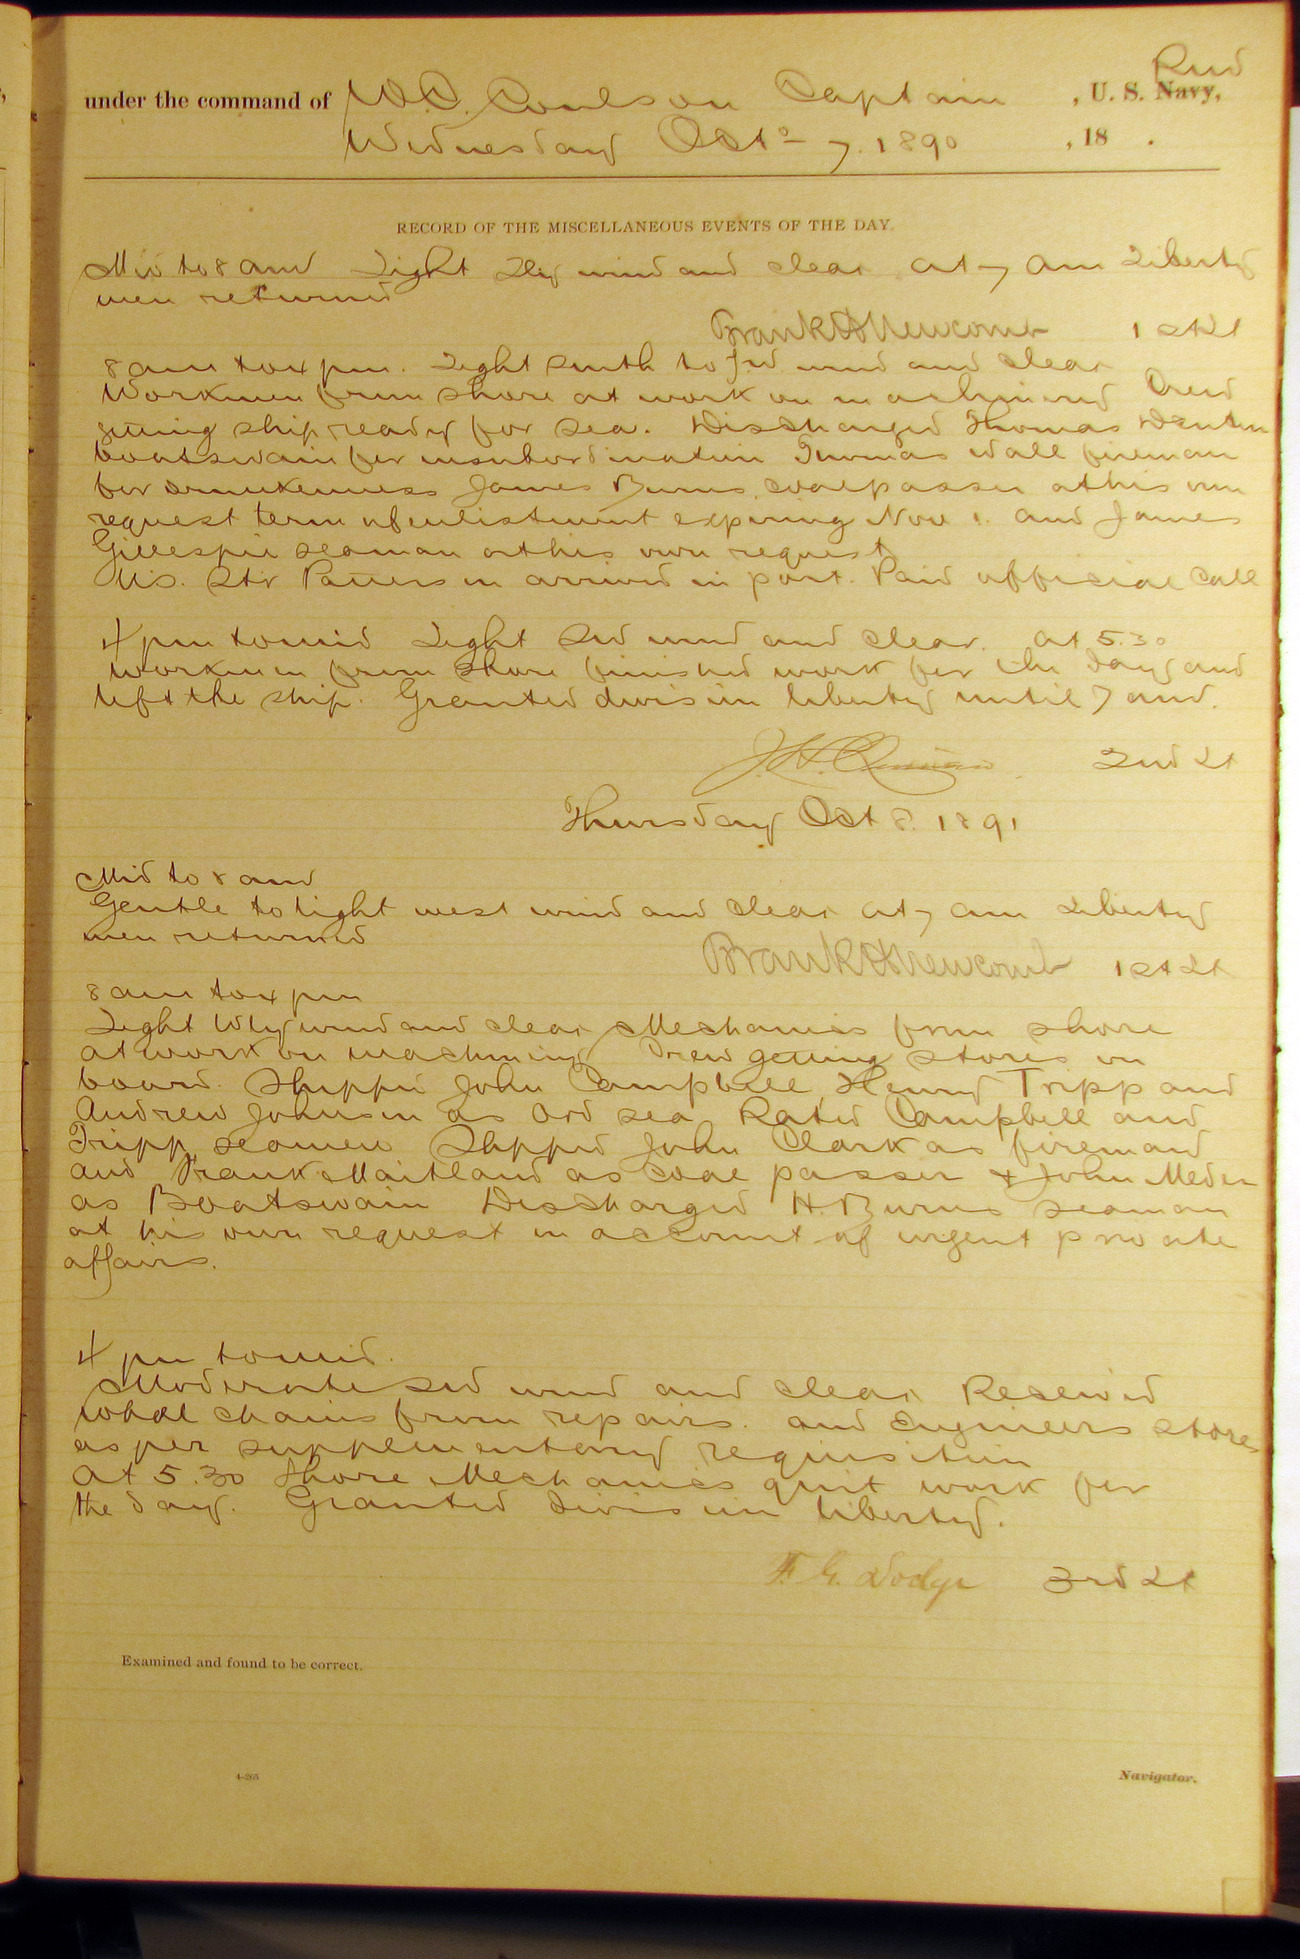 Rev
under the command of W. C. Coulson Captain , U. S. Navy,
Wednesday Oct 7. 1890 , 18 .
RECORD OF THE MISCELLANEOUS EVENTS OF THE DAY.
Mid to 8 am Light Sly wind and clear at 7 am Liberty
men returned
Frank H Newcomb 1st Lt
8 am to 4 pm. Light South to wind and clear
Workmen from shore at work on machinery Crew
getting ship ready for sea. Discharged Thomas
boatswain for insubordination Thomas Wall fireman
for drunkenness James Burns coalpasser at his own
request term of enlistment expiring Nov 1. and James
Gillespie seaman at his own request
U.S. Str Patterson arrived in port. Paid official call
4 pm to mid Light SW wind and clear. At 5.30
workmen from shore finished work for the day and
left the ship. Granted division liberty until 7 am.
J. H. 2nd Lt
Thursday Oct 8. 1891
Mid to 8 am
Gentle to light west wind and clear at 7 am Liberty
men returned
Frank H Newcomb 1st Lt
8 am to 4 pm
Light Wly wind and clear Mechanics from shore
at work on machinery Crew getting stores on
board. Shipped John Campbell, Henry Tripp and
Andrew Johnson as Ord sea Rated Campbell and
Tripp seamen Shipped John Clark as fireman
and Frank Maitland as coal passer & John
as Boatswain Discharged H. Burns seaman
at his own request on account of urgent private
affairs.
4 pm to mid.
Moderate SW wind and clear Received
wheel chains from repairs. and Engineers stores
as per supplementary requisition
At 5.30 Shore Mechanics quit work for
the day. Granted division liberty.
F. G. Dodge 3rd Lt
Examined and found to be correct.
4—205
Navigator.